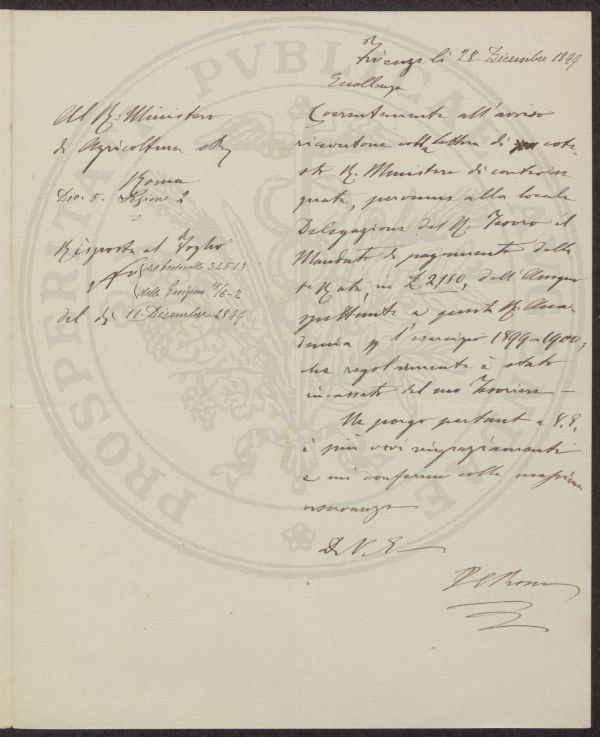 Firenze li 28. Dicembre 1899
Eccellenza
Al R. Ministero
di Agricoltura
Roma
Div. 5. Sezione 2
Risposta al foglio
del Protocollo 34513
della Posizione
del dì 11. Dicembre 1899
Coerentemente all'avviso
colla lettera di cote-
sto R. Ministero di
, pervenne alla locale
Delegazione del R. Tesoro il
Mandato di pagamento della
Rata, in £ 2,180, dell'Assegno
spettante a questa R. Acca-
demia p l'esercizio 1899-1900,
che regolarmente è stato
incassato dal mio Tesoriere
Ne porgo pertanto a V. E.
i più vivi ringraziamenti
e mi confermo colla massima
osservanza
Di V. E.